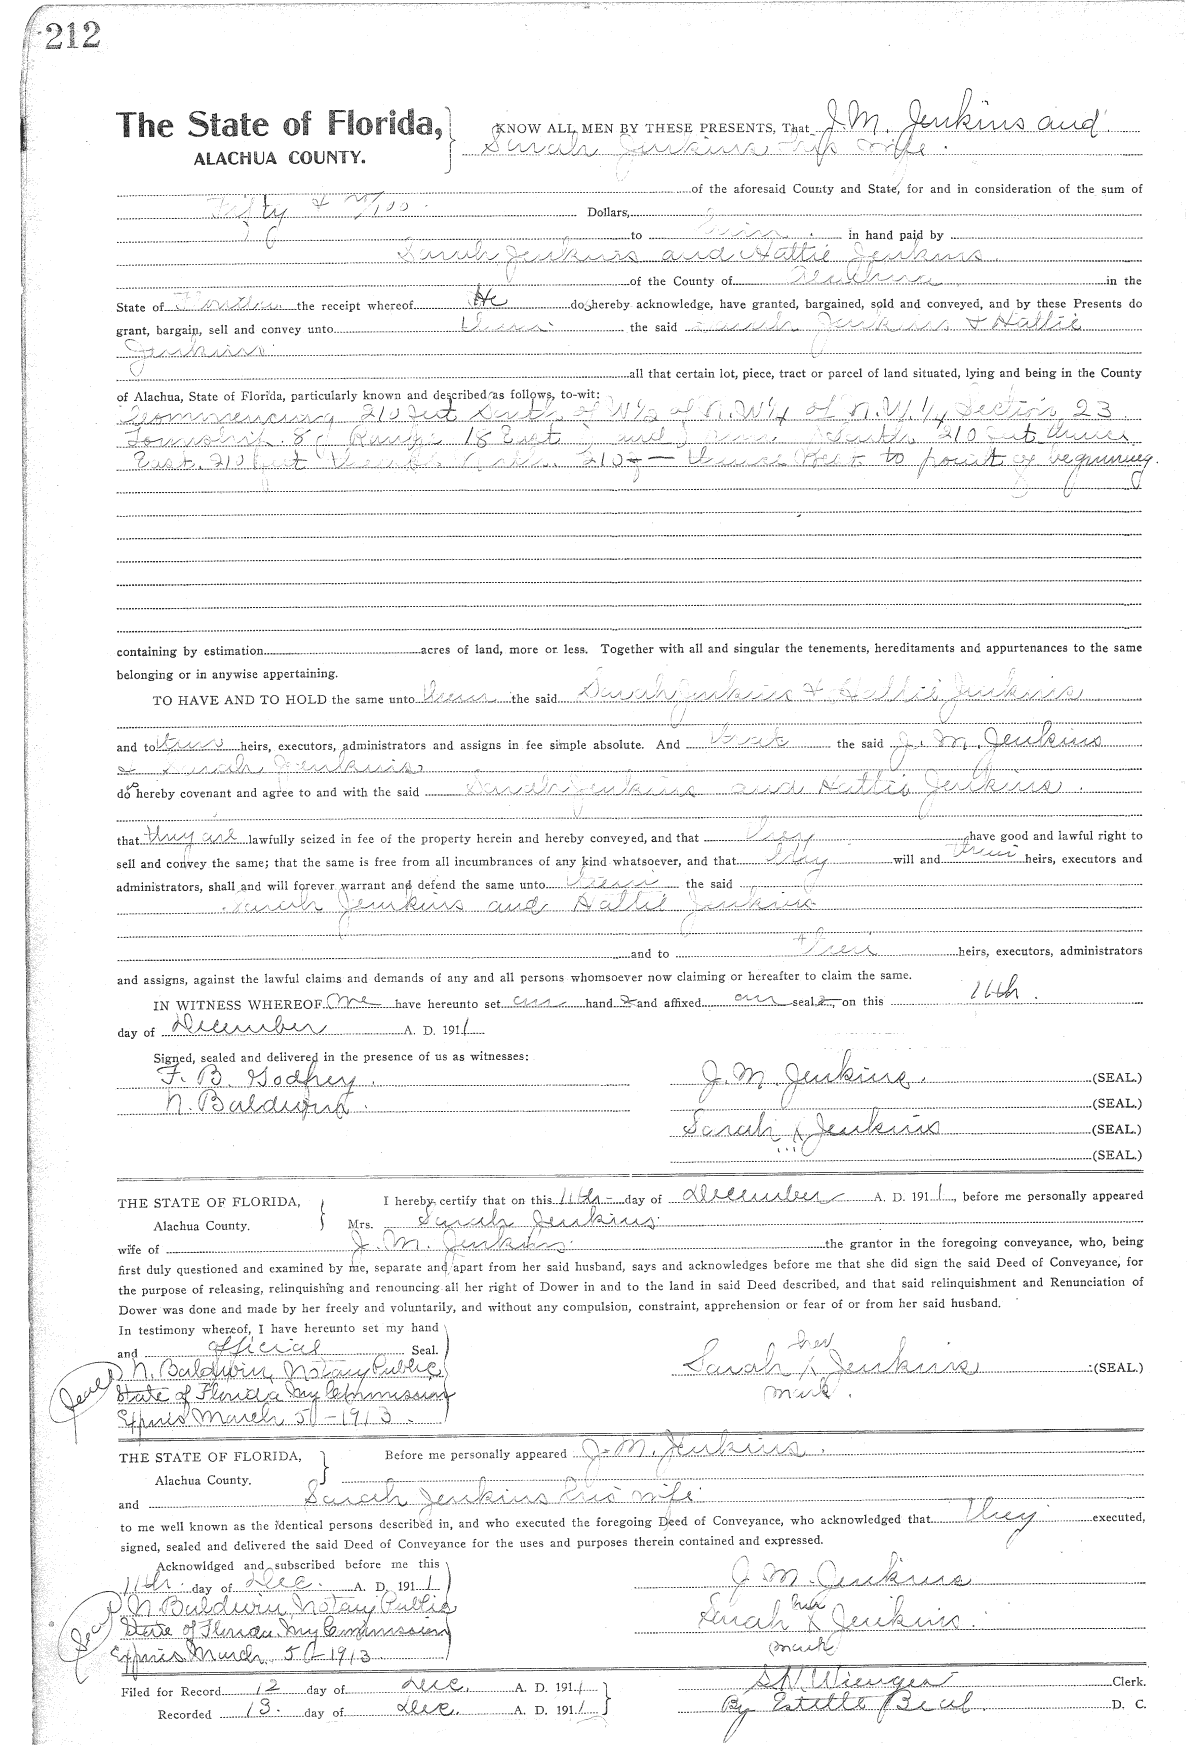 212
The State of Florida, KNOW ALL MEN BY THESE PRESENTS, That J. M. Jenkins and
ALACHUA COUNTY. Sarah Jenkins his wife.
of the aforesaid County and State, for and in consideration of the sum of
Fifty & no/100 Dollars,
to in hand paid by
Sarah Jenkins and Hattie Jenkins
of the County of Alachua in the
State of Florida the receipt whereof do hereby acknowledge, have granted, bargained, sold and conveyed, and by these Presents do
grant, bargain, sell and convey unto them the said Sarah Jenkins & Hattie
Jenkins
all that certain lot, piece, tract or parcel of land situated, lying and being in the County
of Alachua, State of Florida, particularly known and described as follows, to-wit:
Commencing 210 feet South of W½ of N.W¼ of N.W¼, Section 23
Township 8 Range 18 East and South 210 feet thence
East 210 feet thence North 210 — thence West to point of beginning.
containing by estimation acres of land, more or less. Together with all and singular the tenements, hereditaments and appurtenances to the same
belonging or in anywise appertaining.
TO HAVE AND TO HOLD the same unto them the said Sarah Jenkins & Hattie Jenkins
and to heirs, executors, administrators and assigns in fee simple absolute. And the said J. M. Jenkins
& Sarah Jenkins
do hereby covenant and agree to and with the said Sarah Jenkins and Hattie Jenkins.
that they are lawfully seized in fee of the property herein and hereby conveyed, and that they have good and lawful right to
sell and convey the same; that the same is free from all incumbrances of any kind whatsoever, and that they will and their heirs, executors and
administrators, shall and will forever warrant and defend the same unto the said
Sarah Jenkins and Hattie Jenkins
and to their heirs, executors, administrators
and assigns, against the lawful claims and demands of any and all persons whomsoever now claiming or hereafter to claim the same.
IN WITNESS WHEREOF have hereunto set our hand s and affixed our seal s, on this 11th.
day of December A. D. 1911
Signed, sealed and delivered in the presence of us as witnesses:
F. B. Godfrey. J. M. Jenkins. (SEAL.)
N. Baldwin. (SEAL.)
Sarah X Jenkins (SEAL.)
(SEAL.)
THE STATE OF FLORIDA, I hereby certify that on this 11th day of December A. D. 1911, before me personally appeared
Alachua County. Mrs. Sarah Jenkins
wife of J. M. Jenkins. the grantor in the foregoing conveyance, who, being
first duly questioned and examined by me, separate and apart from her said husband, says and acknowledges before me that she did sign the said Deed of Conveyance, for
the purpose of releasing, relinquishing and renouncing all her right of Dower in and to the land in said Deed described, and that said relinquishment and Renunciation of
Dower was done and made by her freely and voluntarily, and without any compulsion, constraint, apprehension or fear of or from her said husband.
In testimony whereof, I have hereunto set my hand
and official Seal. her
(Seal) N. Baldwin, Notary Public Sarah X Jenkins (SEAL.)
State of Florida My Commission mark.
Expires March 5 - 1913.
THE STATE OF FLORIDA, Before me personally appeared J. M. Jenkins.
Alachua County.
and Sarah Jenkins his wife
to me well known as the identical persons described in, and who executed the foregoing Deed of Conveyance, who acknowledged that they executed,
signed, sealed and delivered the said Deed of Conveyance for the uses and purposes therein contained and expressed.
Acknowldged and subscribed before me this
11th. day of Dec. A. D. 1911 J. M. Jenkins
(Seal) N Baldwin, Notary Public her
State of Florida. My Commission Sarah X Jenkins.
Expires March 5 1913 mark
Filed for Record 12 day of Dec. A. D. 1911 S. H. Wienges Clerk.
Recorded 13. day of Dec. A. D. 1911 By Estelle Beal. D. C.